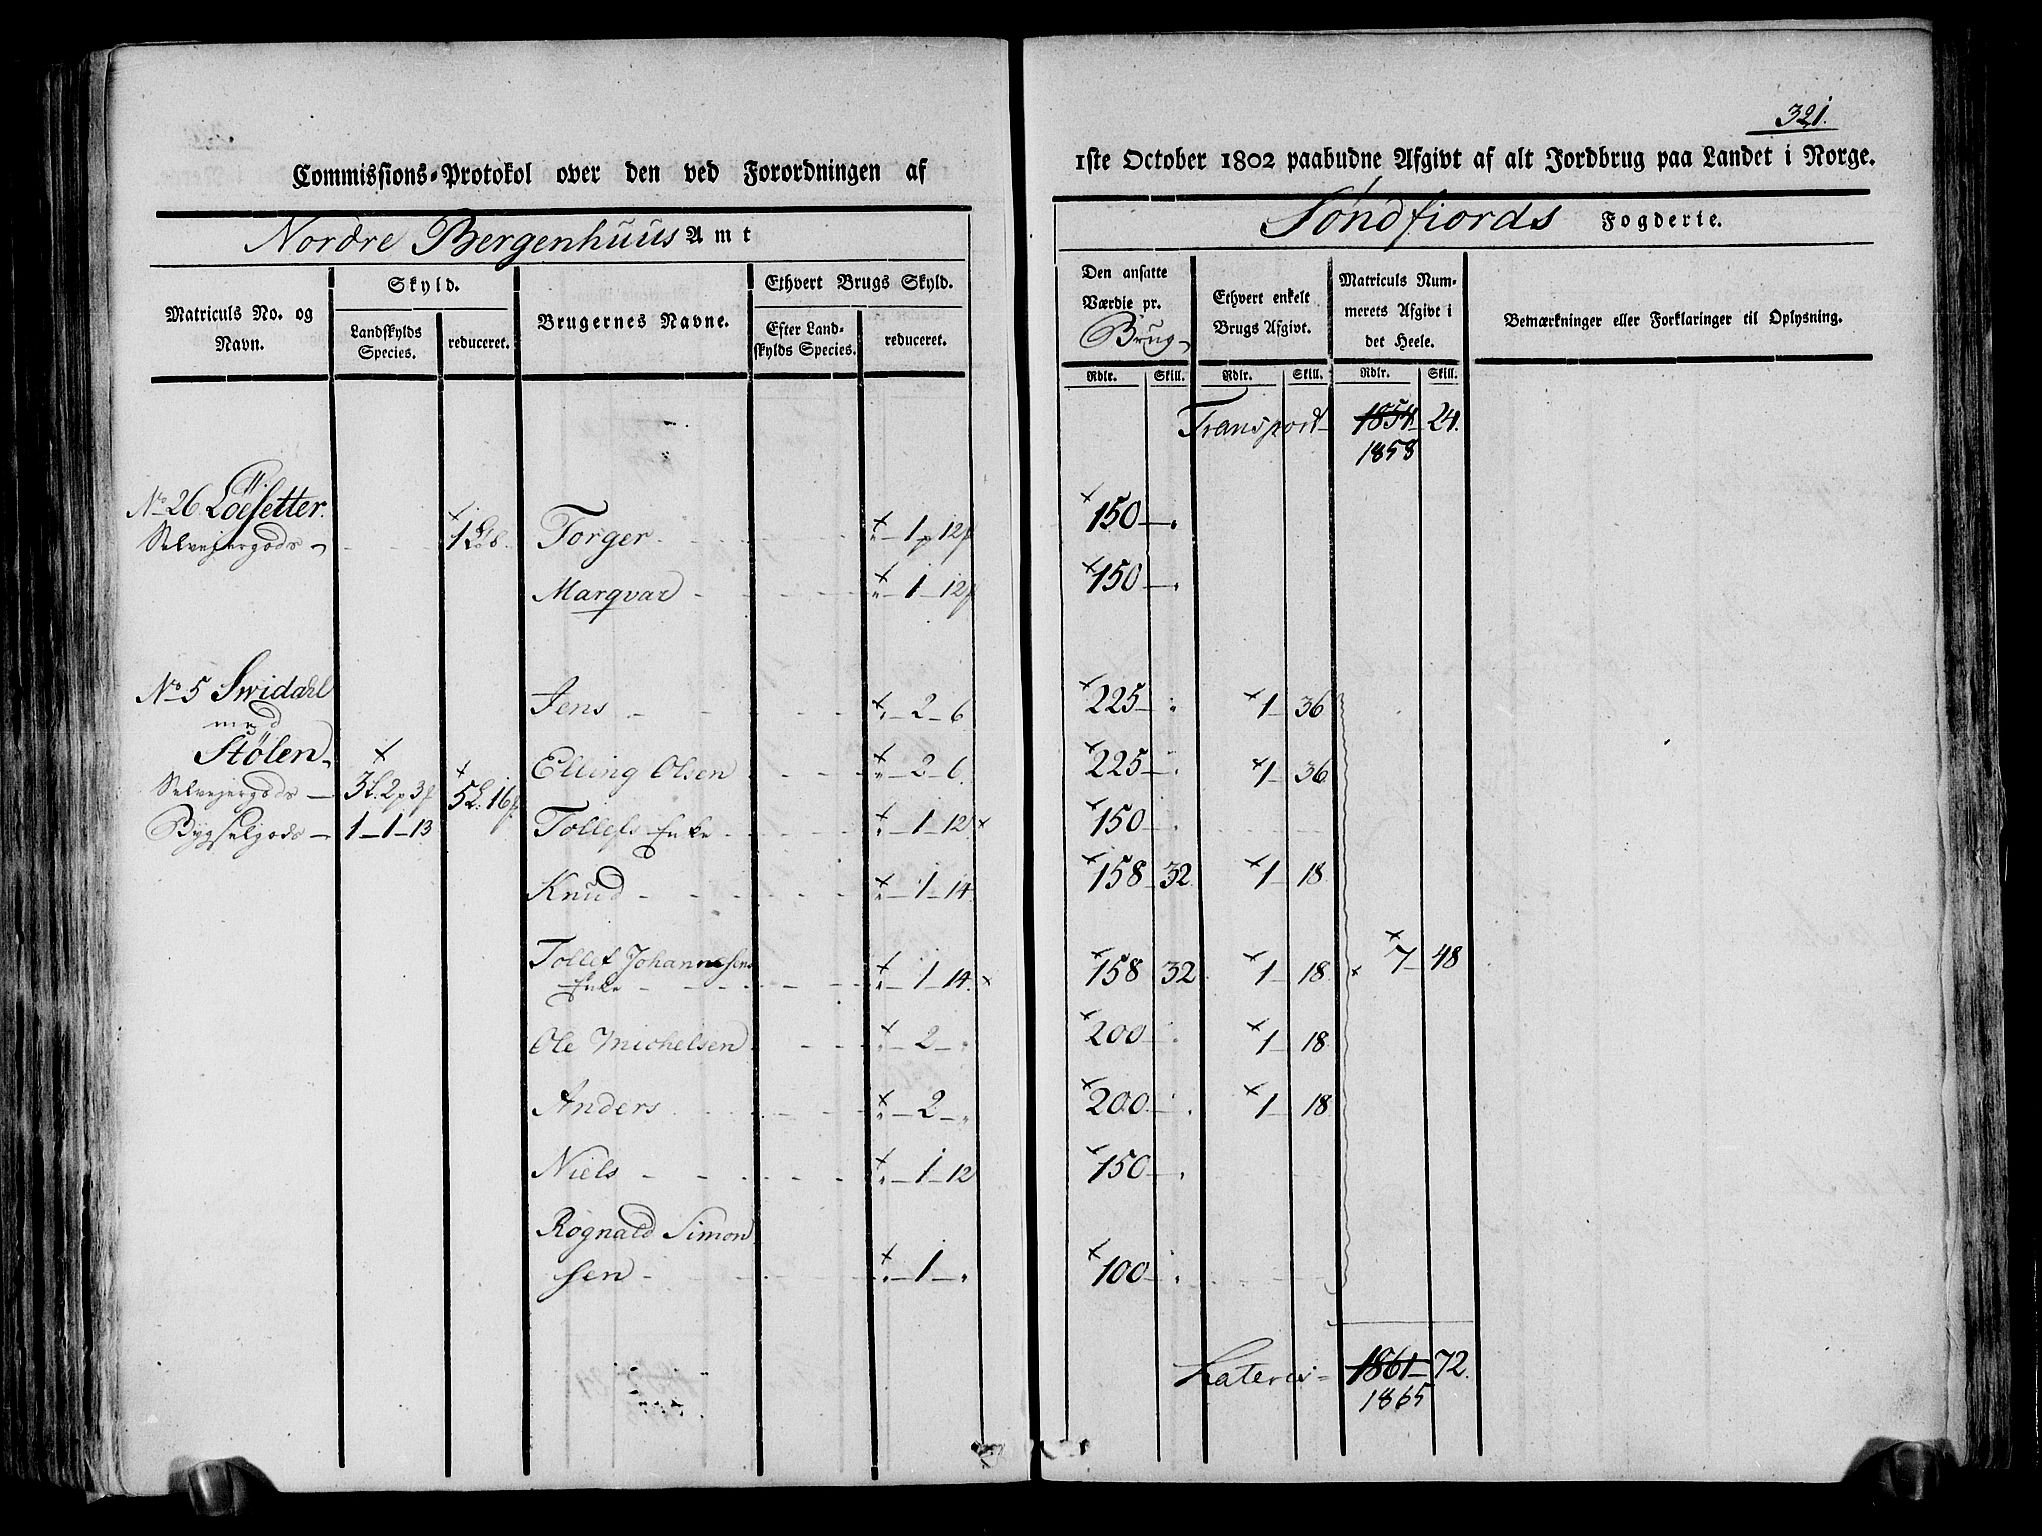 321.
Commissions-Protokol over den ved Forordningen af 1ste October 1802 paabudne Afgivt af alt Jordbrug paa Landet i Norge.
Nordre Bergenhuus Amt
Søndfiords Fogderie.
Matriculs No. og Navn.
Skyld.
Landskylds Species.
reduceret.
Brugernes Navne.
Ethvert Brugs Skyld.
Efter Landskylds Species.
reduceret.
Den ansatte Værdie pr. Brug
Ethvert enkelt Brugs Afgivt.
Matriculs Nummerets Afgivt i det Heele.
Bemærkninger eller Forklaringer til Oplysning.
Rdlr. Skill. Rdlr. Skill. Rdlr. Skill.
Transport 1854 24.
1858
No 26 Löesetter.
Selvejergods Torger 1 12 150
Marqvar 1 12 150
No 5 Swidahl Jens 2 6 225 1 36
med
Stølen Elling Olsen 2 6 225 1 36
Selvejergods 3 2 3 5 16
Bygselgods 1 1 13 Tollefs Enke 1 12 150
Knud 1 14 158 32 1 18
Tollef Johannesens
Enke 1 14 158 32 1 18 7 48
Ole Michelsen 2 200 1 18
Anders 2 200 1 18
Niels 1 12 150
Rognald Simon
sen 1 100
Lateris 1861 72.
1865